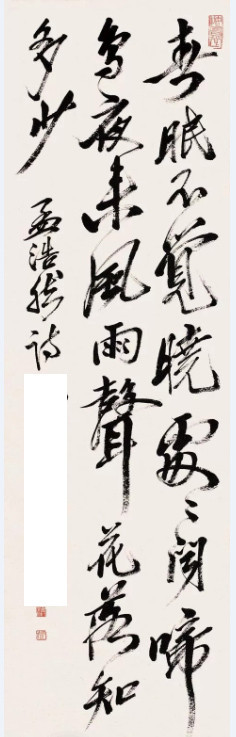 春眠不覺曉處〻聞啼
鳥夜来風雨聲花落知
多少
孟浩然诗